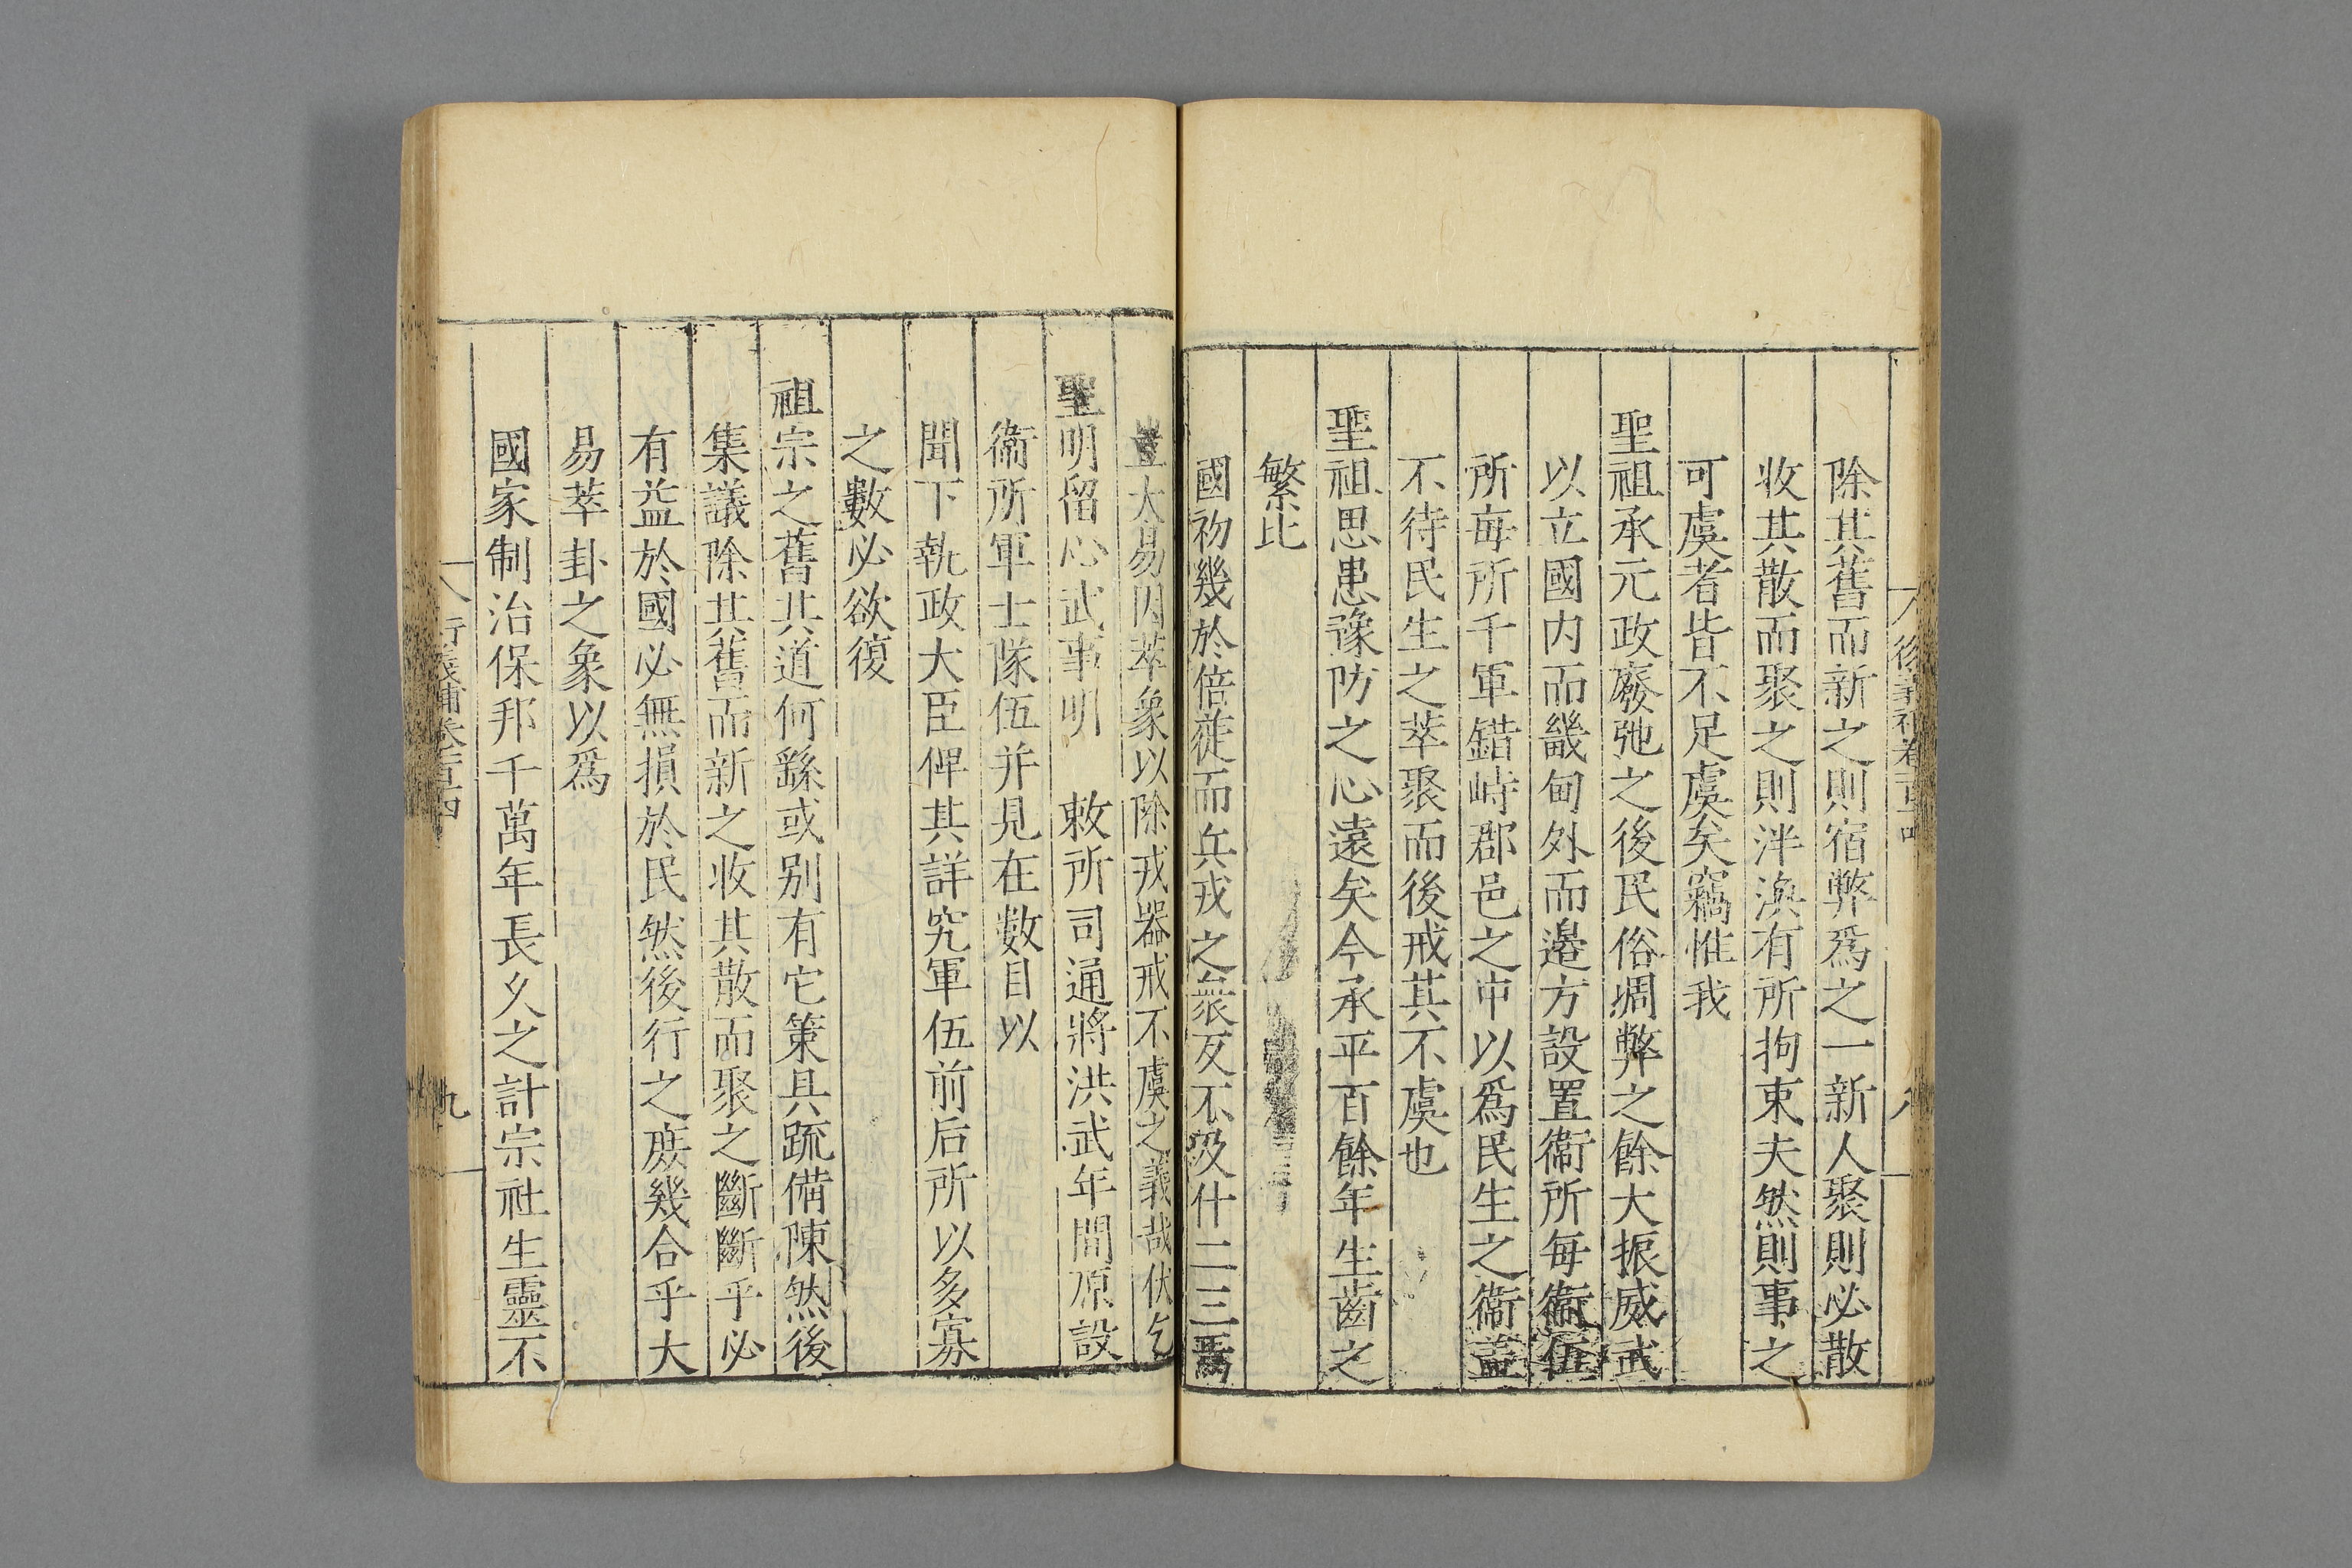 除其舊而新之則宿弊爲之一新人聚則必散
收其散而聚之則泮渙有所拘束夫然則事之
可虞者皆不足虞矣竊惟我
聖祖承元政廢弛之後民俗凋弊之餘大振威武
以立國内而畿甸外而邉方設置衞所每衞伍
所每所千軍錯峙郡邑之中以爲民生之衞盖
不待民生之萃聚而後戒其不虞也
聖祖思患豫防之心遠矣今承平百餘年生齒之
繁比
國初幾於倍蓰而兵戎之衆反不及什二三焉
豈大易因萃象以除戎器戒不虞之義哉伏乞
聖明留心武事明 敕所司通將洪武年間原設
衞所軍士隊伍并見在數目以
聞下執政大臣俾其詳究軍伍前后所以多寡
之數必欲復
祖宗之舊其道何繇或别有它策具疏備陳然後
集議除其舊而新之收其散而聚之斷斷乎必
有益於國必無損於民然後行之庶幾合乎大
易萃卦之象以爲
國家制治保邦千萬年長久之計宗社生靈不
行義補卷一百十四
九